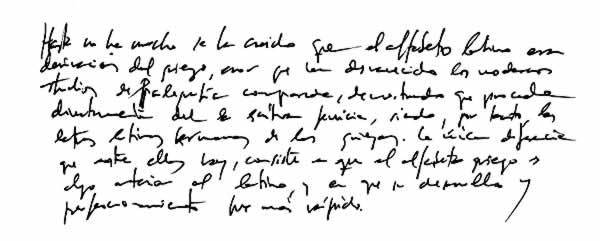 Hasta no ha mucho se ha creido que el alfabeto latino era
derivacion del griego, error que han desvanecido los modernos
studios de paleografia comparada, demostrando que procede
directamente del de escritura fenicia, siendo, por tanto, las
letras latinas hermanas de las griegas. La única diferencia
que entre ellas hay, consiste en que el alfabeto griego es
algo anterior al latino, y en que su desarrollo y
perfeccionamiento fue más rápido.